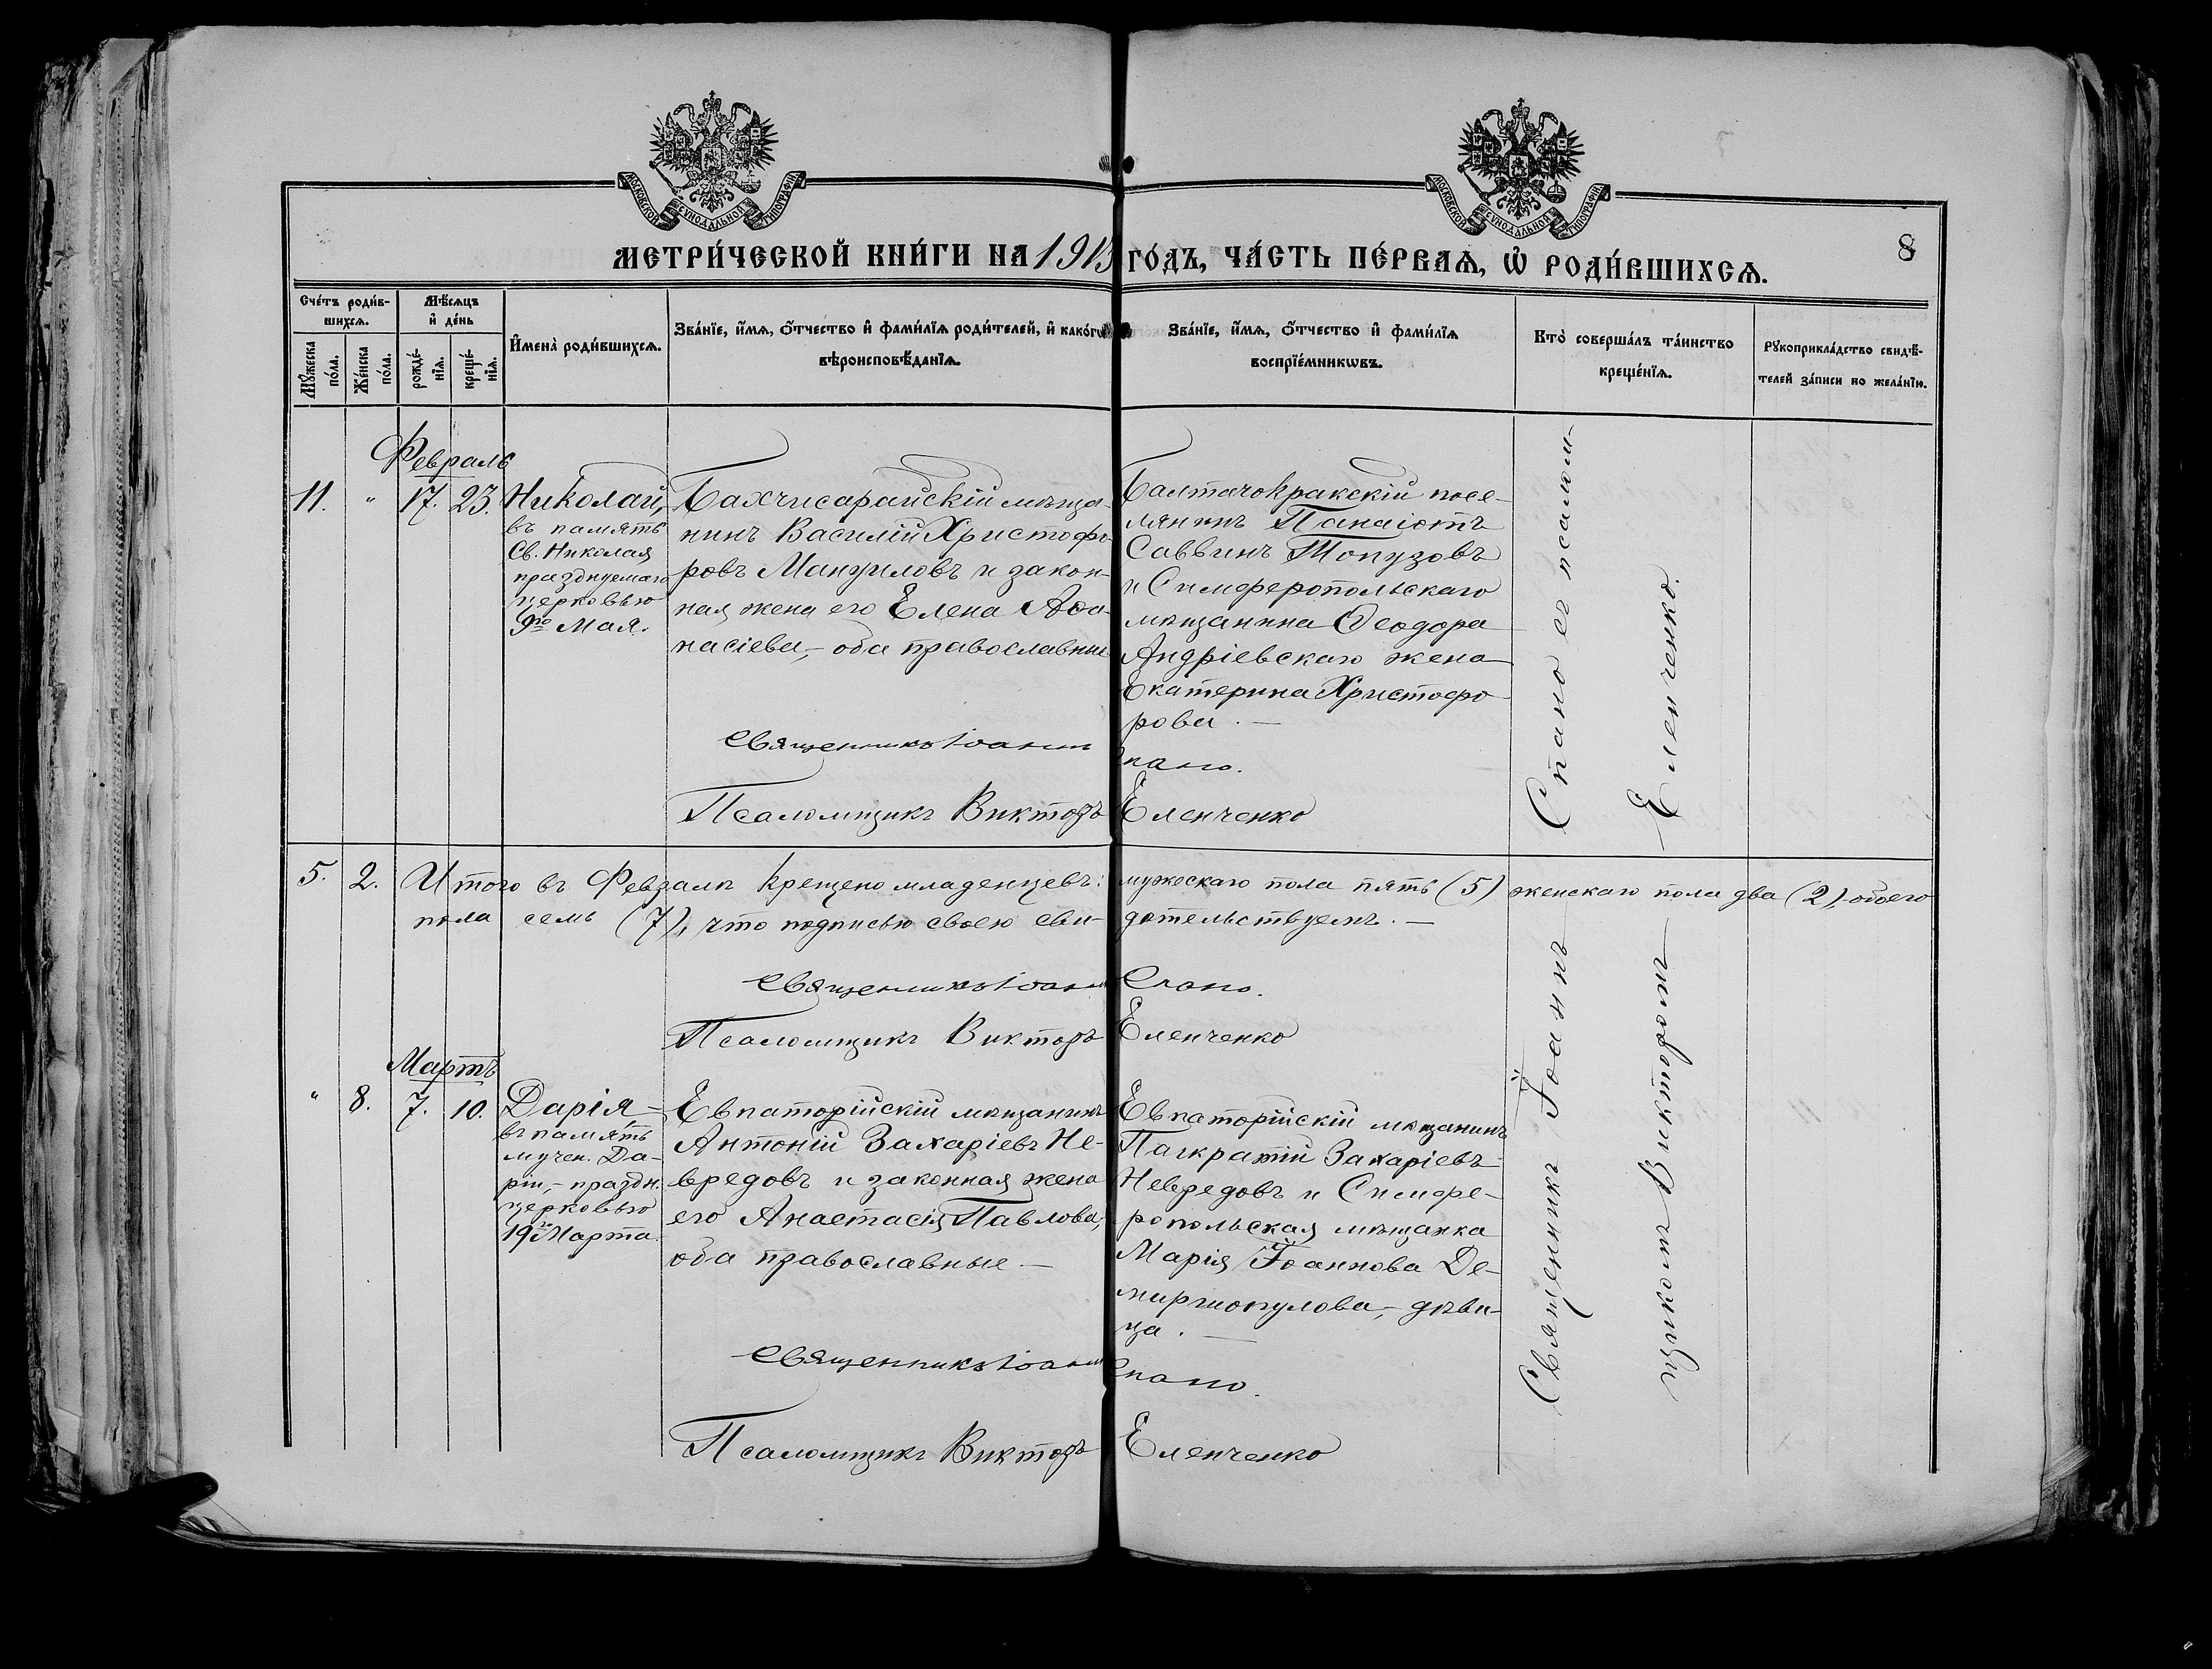 МОСКОВСКОЙ СѴНОДАЛЬНОЙ ТИПОГРАФІИ
МОСКОВСКОЙ СѴНОДАЛЬНОЙ ТИПОГРАФІИ
МЕТРИ́ЧЕСКОЙ КНИ́ГИ НА 1913 ГО́ДЪ, ЧА́СТЬ ПЕ́РВАѦ, Ѽ РОДИ́ВШИХСѦ.
8
Сче́тъ роди́в-
шихсѧ.
Мѣ́сѧцъ
и҆ де́нь
Мꙋ́жеска
по́ла.
Же́нска
по́ла.
рожде́-
нїѧ.
креще́-
нїѧ.
И҆мена̀ роди́вшихсѧ.
Зва́нїе, и҆́мѧ, ѻ҆́тчество и҆ фами́лїѧ роди́телей, и҆ како́гѡ
вѣроисповѣ́данїѧ.
Зва́нїе, и҆́мѧ, ѻ҆́тчество и҆ фами́лїѧ
воспрїе́мникѡвъ.
Кто̀ соверша́лъ та́инство
креще́нїѧ.
Рꙋкоприкла́дство свидѣ́-
телей за́писи по жела́нїю.
Февраль
11. " 17. 23.
Николай,
въ память
Св. Николая
празднуемаго
церковью
9го Мая.
Бахчисарайскій мѣща-
нинъ Василій Христофо
ровъ Мануиловъ и закон-
ная жена его Елена Аѳа-
насіева,- оба православные
Балтачокракскій посе-
лянинъ Панаіотъ
Саввинъ Топузовъ
и Симферопольскаго
мѣщанина Ѳеодора
Андріевскаго жена
Екатерина Христофо
рова. —
Священникъ Іоаннъ Спано.
Псаломщикъ Викторъ Еленченко
5. 2. Итого въ Февралѣ крещено младенцевъ: мужескаго пола пять (5) женскаго пола два (2), обоего
пола семь (7), что подписью своею сви- дѣтельствуемъ. —
Священникъ Іоаннъ Спано.
Псаломщикъ Викторъ Еленченко
Мартъ
" 8. 7. 10.
Дарія —
въ память
мучен. Да-
ріи,- праздн.
церковью
19го Марта.
Евпаторійскій мѣщанинъ
Антоній Захаріевъ Не-
вредовъ и законная жена
его Анастасія Павлова,
оба православные —
Евпаторійскій мѣщанинъ
Панкратій Захаріевъ
Невредовъ и Симфе-
ропольская мѣщанка
Марія Іоаннова Де-
мирчиопулова,- дѣви-
ца. —
Священникъ Іоаннъ Спано.
Псаломщикъ Викторъ Еленченко
Священникъ Іоаннъ Спано съ псалом-
щикомъ Викторомъ Еленченко.